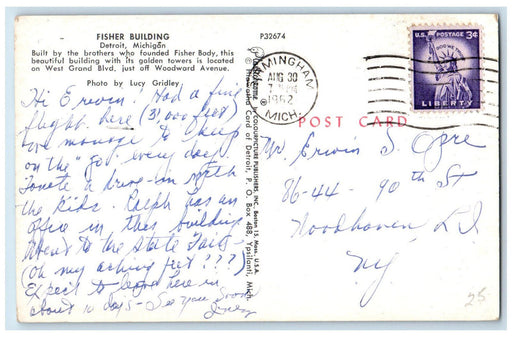 FISHER BUILDING
Detroit, Michigan
Built by the brothers who founded Fisher Body, this
beautiful building with its golden towers is located
on West Grand Blvd, just off Woodward Avenue.
Photo by Lucy Gridley
P32674
Hi Erwin! Had a fine
flight here (31,000 feet)
we manage to keep
on the "go" every day
Tonite a drive-in with
the kids. Ralph has an
office in this building
Went to the State Fair-
(oh my aching feet???)
Expect to leave here in
about 10 days- See you soon
COLOURPICTURE PUBLISHERS, INC., Boston 15, Mass. U.S.A.
Hiawatha Card of Detroit, P. O. Box 488, Ypsilanti, Mich.
MINGHAM
AUG 30
1962
MICH.
U.S. POSTAGE 3¢
IN GOD WE TRUST
LIBERTY
POST CARD
Mr. Erwin S.
86-44- 90th St
Woodhaven L I
NY
25